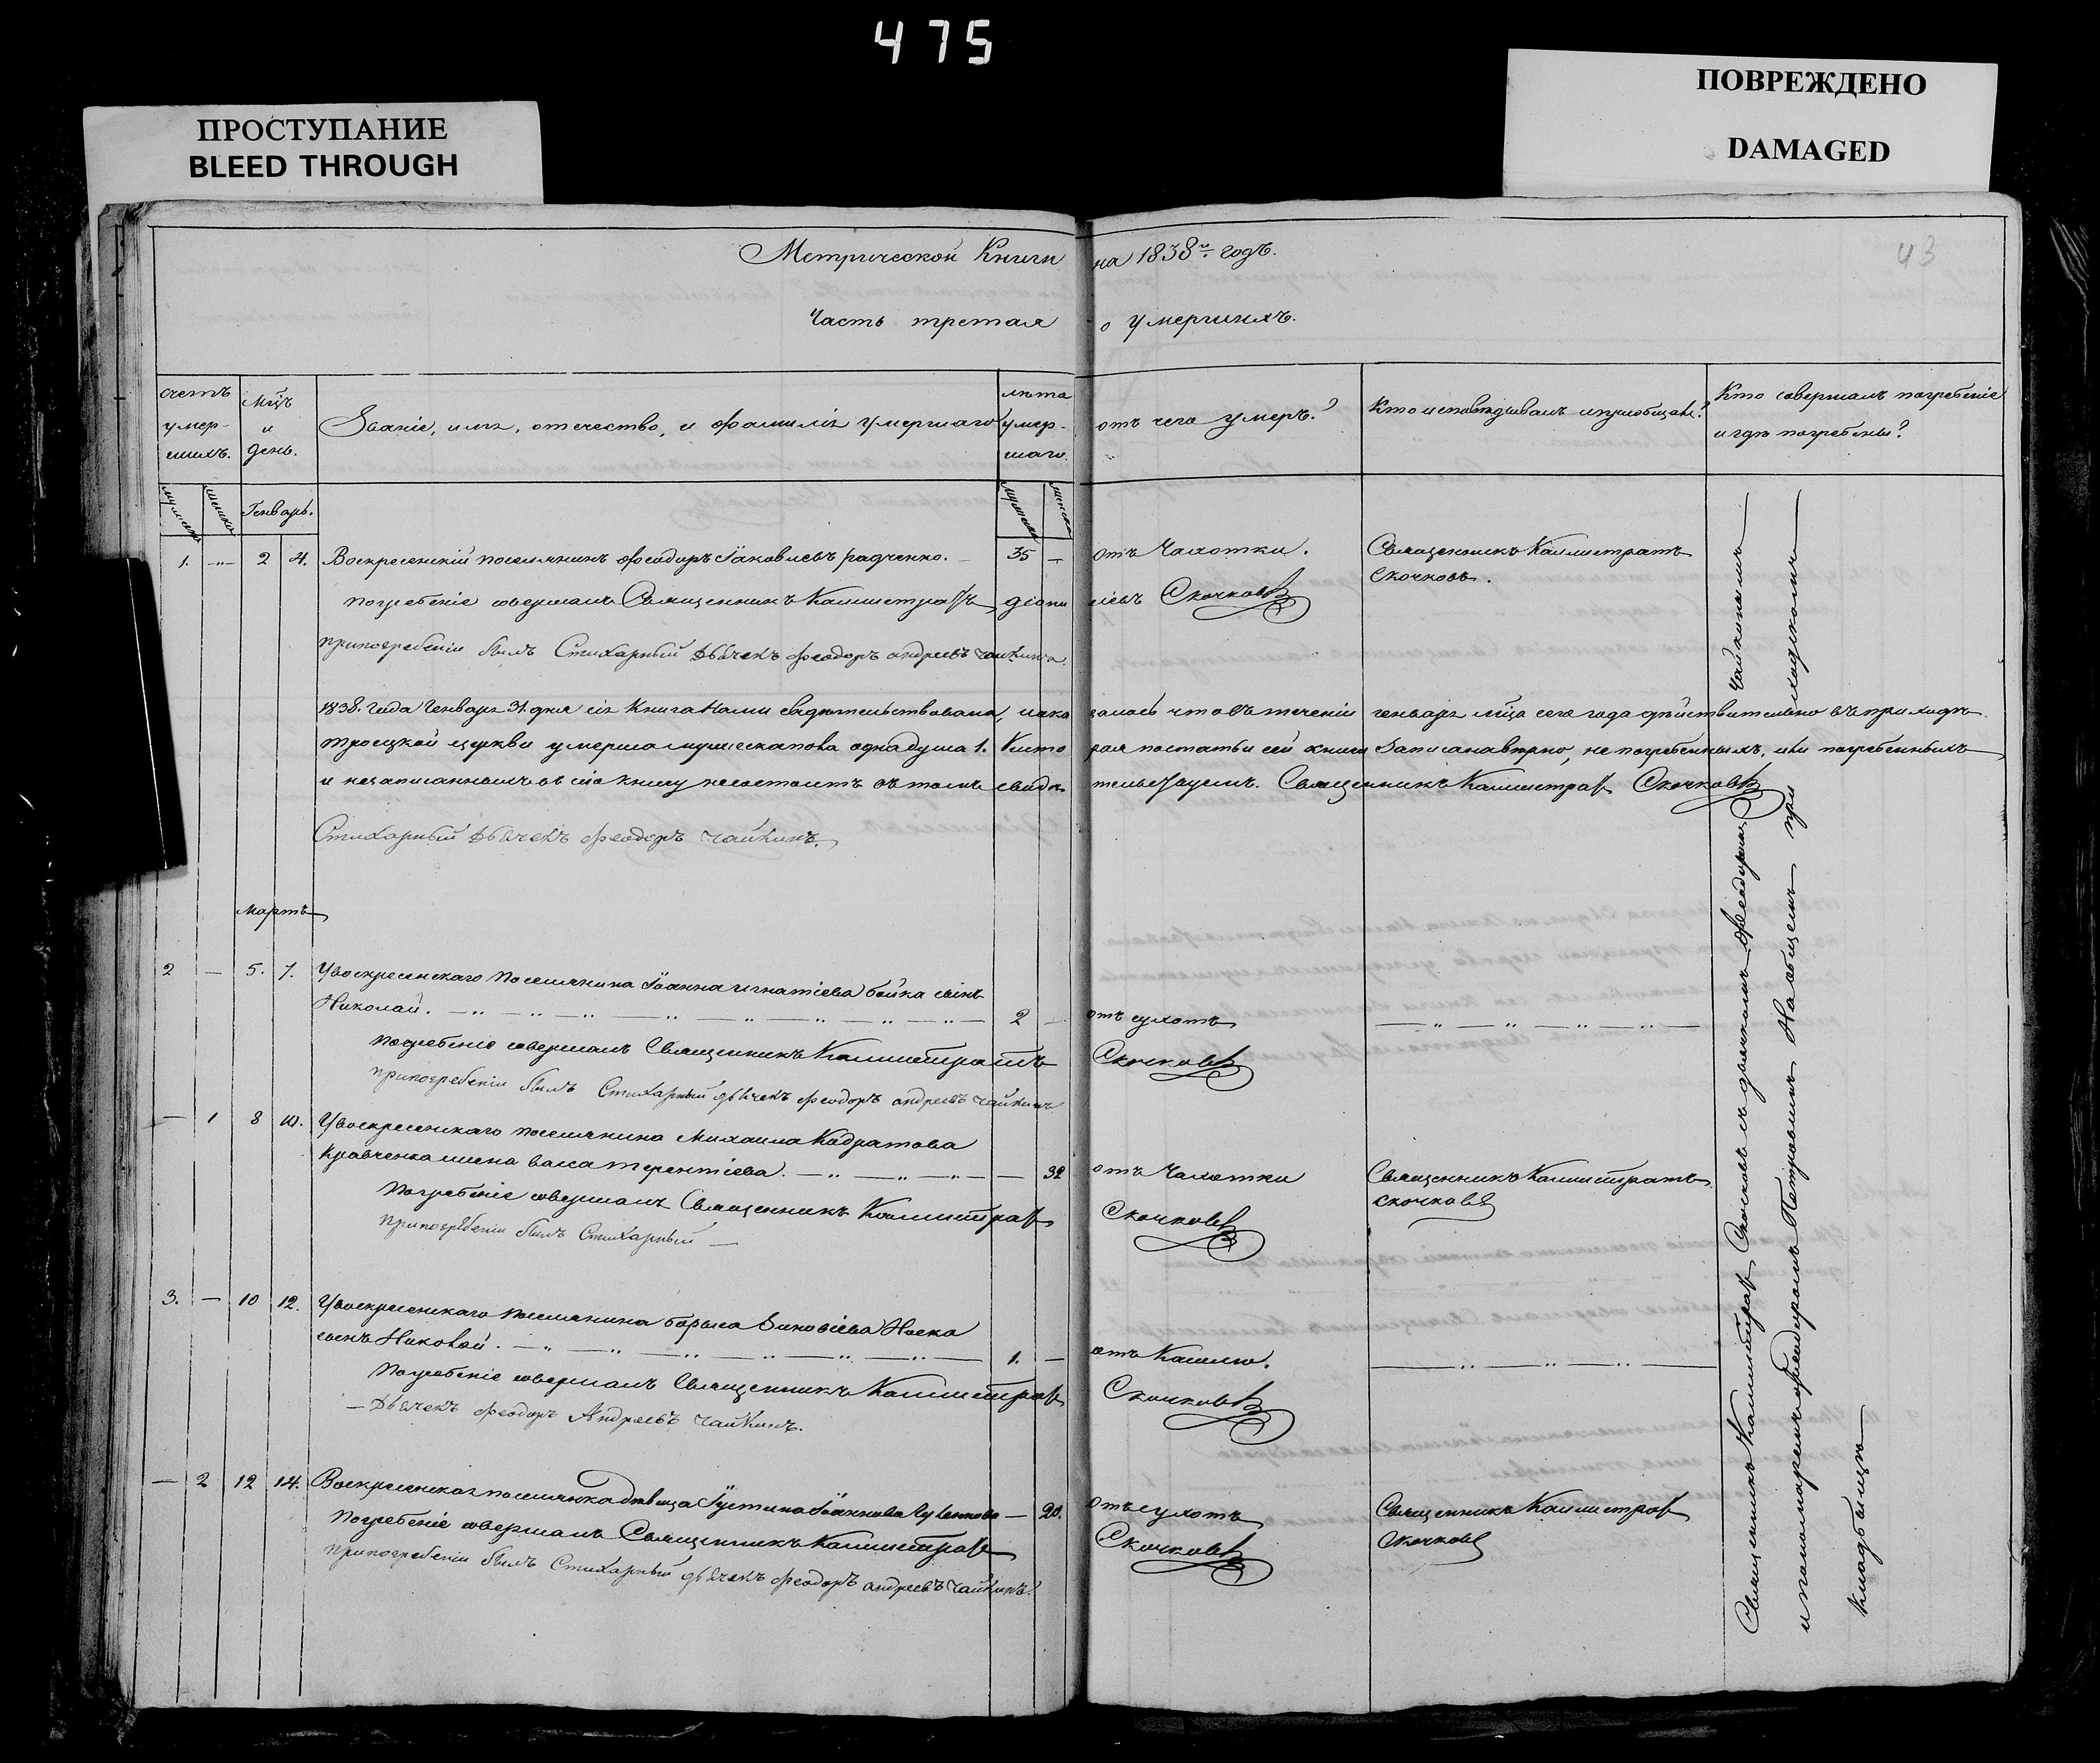 475
ПРОСТУПАНИЕ
BLEED THROUGH
ПОВРЕЖДЕНО
DAMAGED
43
Метрической Книги на 1838й годъ.
Часть третая о умершихъ.
счетъ умер-шихъ.
Мцъ и день.
Званіе, имя, отечество, и фамилія умершаго
лѣта умер-шаго.
отъ чего умеръ?
Кто исповѣдывалъ и приобщалъ?
Кто совершалъ погребеніе и гдѣ погребены?
Генварь.
1. — 2 4. Воскресенскій поселянинъ Феодоръ Іаковлевъ радченко. 35 — отъ Чахотки. Священникъ Каллистратъ
Скочковъ.
погребеніе совершалъ Священникъ Каллистратъ Скочковъ
при погребеніи былъ Стихарный Дьячекъ Феодоръ андреевъ Чайкинъ
1838. года Генваря 31. дня сія Книга Нами свидѣтельствована, и оказалось что въ теченіи генваря мца сего года дѣйствительно въ приходѣ
троецкой церкви умерло мужеска пола одна душа 1. Которая по статьи сей книги Записана вѣрно, не погребенныхъ, или погребенныхъ
и незаписанныхъ въ сію книгу несостоитъ въ томъ свидѣтельствуемъ. Священникъ Каллистратъ Скочковъ
Стихарный Дьячекъ Феодоръ Чайкинъ.
Мартъ
2 — 5. 7. У воскресенскаго Поселянина Іоанна игнатіева бойка сынъ
Николай. 2 — отъ сухотъ
Погребеніе совершалъ Священникъ Каллистратъ Скочковъ
при погребеніи былъ Стихарный дьячекъ Феодоръ андреевъ Чайкинъ
— 1 8 10. У воскресенскаго поселянина Михаила Кодратова
Кравченка жена васса терентіева. — 32 отъ Чахотки Священникъ Каллистратъ
Скочковъ
Погребеніе совершалъ Священникъ Каллистратъ Скочковъ
при погребеніи былъ Стихарный —
3. — 10 12. У воскресенскаго Поселянина бориса Зиновіева Носка
сынъ Николай. 1. — отъ Кашлю.
Погребеніе совершалъ Священникъ Каллистратъ Скочковъ
— Дьячекъ Феодоръ Андреевъ Чайкинъ.
— 2 12 14. Воскресенская поселянка дѣвица Іустина Іоаннова — 20. отъ сухотъ Священникъ Каллистратъ
Скочковъ
Погребеніе совершалъ Священникъ Каллистратъ Скочковъ
при погребеніи былъ Стихарный дьячекъ Феодоръ андреевъ Чайкинъ.
Священникъ Каллистратъ Скочковъ съ дьячкомъ Феодоромъ Чайкинымъ
и пономаремъ Петровымъ На общемъ при
Кладбищѣ